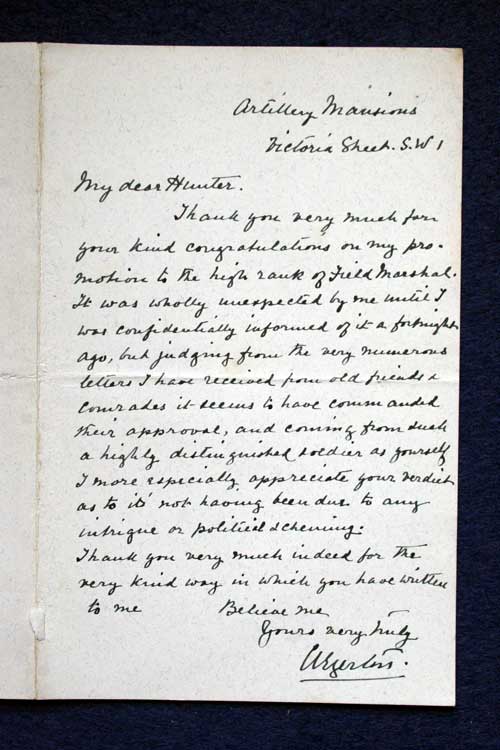 Artillery Mansions
Victoria Street. S.W 1
My dear Hunter.
Thank you very much for
your kind congratulations on my pro-
motion to the high rank of Field Marshal.
It was wholly unexpected by me until I
was confidentially informed of it a fortnight
ago, but judging from the very numerous
letters I have received from old friends &
comrades it seems to have commanded
their approval, and coming from such
a highly distinguished soldier as yourself
I more especially appreciate your verdict
as to it's not having been due to any
intrigue or political scheming.
Thank you very much indeed for the
very kind way in which you have written
to me Believe me
Yours very truly
CEgerton.